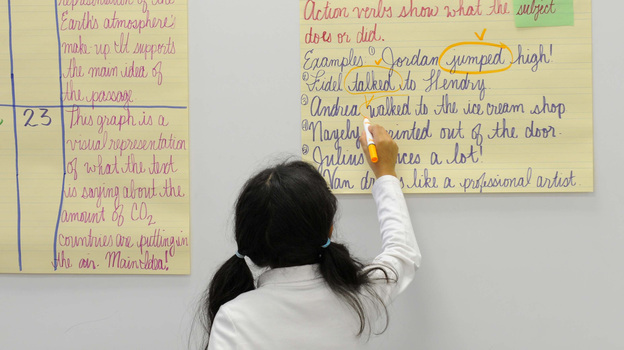 representation of the
Earth's atmosphere's
make-up. It supports
the main idea of
the passage
23
This graph is a
visual representation
of what the text
is saying about the
amount of CO2
countries are putting in
the air. Main Idea!
Action verbs show what the subject
does or did.
Examples: ① Jordan jumped high!
Fidel talked to Hendry
③ Andrea walked to the ice cream shop
④ Nayely out of the door.
⑤ Julius a lot!
Van like a professional artist.